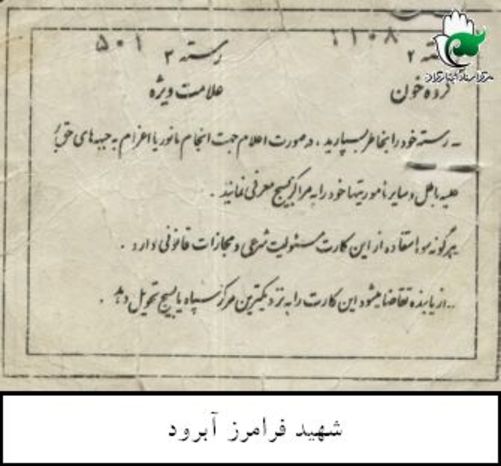 ۱۱۰۸ ۵۰۱
رسته ۲ رسته ۳
گروه خون علامت ویژه
- رسته خود را بخاطر بسپارید، در صورت اعلام جهت انجام مانور یا اعزام به جبهه های حق
علیه باطل و سایر مأموریتها خود را به مراکز بسیج معرفی نمائید.
هرگونه سوء استفاده از این کارت مسئولیت شرعی و مجازات قانونی دارد.
از یابنده تقاضا میشود این کارت را به نزدیکترین مرکز سپاه یا بسیج تحویل دهد.
شهید فرامرز آبرود